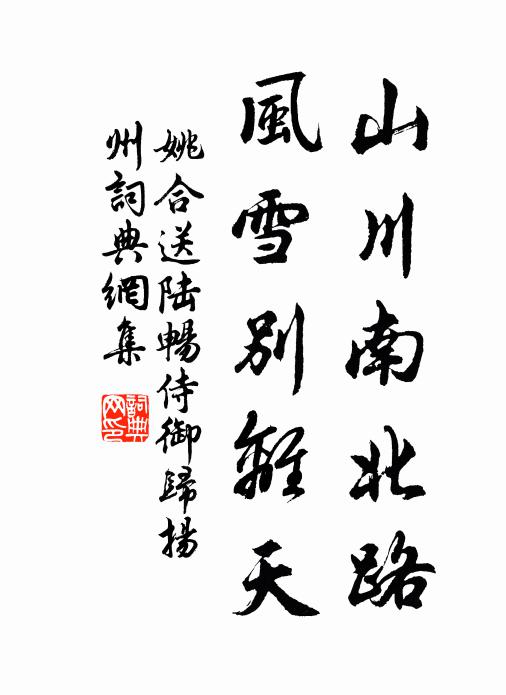 山川南北路
風雪別離天
姚合送陸暢侍御歸揚
州詞典網集
詞典网印